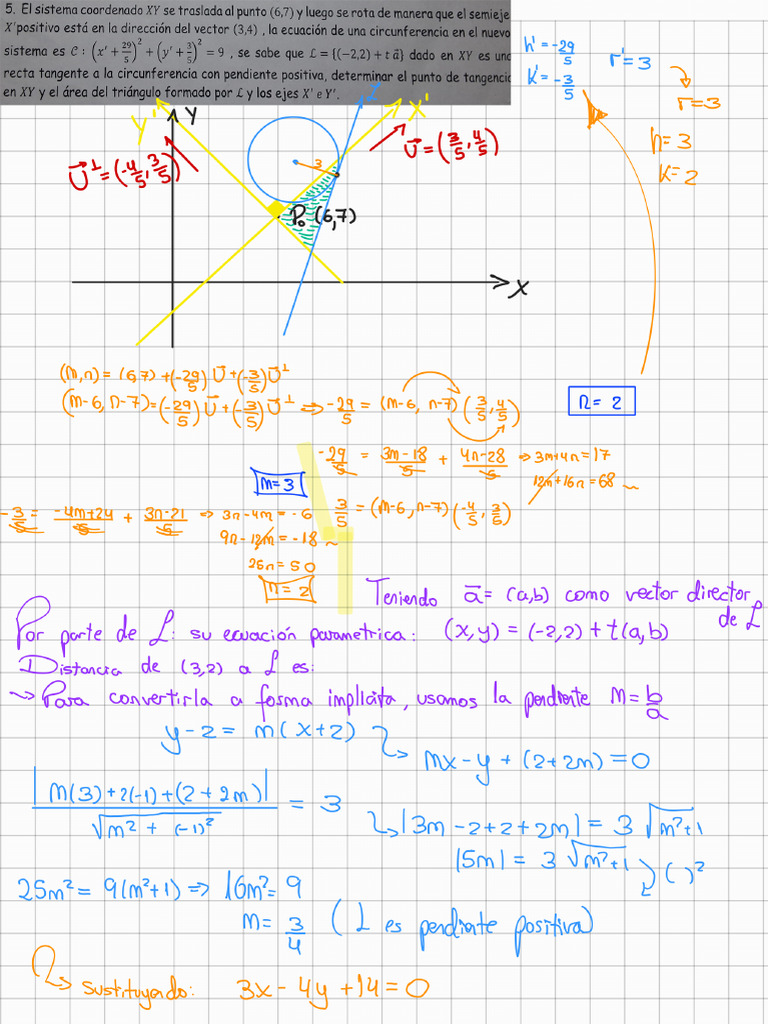 5. El sistema coordenado XY se traslada al punto (6,7) y luego se rota de manera que el semieje
X'positivo está en la dirección del vector (3,4) , la ecuación de una circunferencia en el nuevo
sistema es C : (x' + 29/5)² + (y' + 3/5)² = 9 , se sabe que L = {(−2,2) + t a⃗} dado en XY es una
recta tangente a la circunferencia con pendiente positiva, determinar el punto de tangencia
en XY y el área del triángulo formado por L y los ejes X' e Y'.
h' = -29/5
k' = -3/5
r' = 3
r = 3
h = 3
k = 2
Y'
Y
L
X'
U⃗⊥ = (-4/5, 3/5)
U⃗ = (3/5, 4/5)
3
P₀ (6,7)
X
(m,n) = (6,7) + (-29/5) U⃗ + (-3/5) U⃗⊥
(m-6, n-7) = (-29/5) U⃗ + (-3/5) U⃗⊥ ⇒ -29/5 = (m-6, n-7) (3/5, 4/5)
n = 2
-29/5 = 3m-18/5 + 4n-28/5 ⇒ 3m+4n = 17
12m+16n = 68 ~
m = 3
3/5 = (m-6, n-7) (-4/5, 3/5)
-3/5 = -4m+24/5 + 3n-21/5 ⇒ 3n-4m = -6
9n-12m = -18 ~
25n = 50
n = 2
Teniendo a⃗ = (a,b) como vector director de L
Por parte de L: su ecuación parametrica: (x,y) = (-2,2) + t(a,b)
Distancia de (3,2) a L es:
~> Para convertirla a forma implicita, usamos la pendiente m = b/a
y-2 = m(x+2)
mx-y + (2+2m) = 0
|m(3)+2(-1)+(2+2m)| / √(m² + (-1)²) = 3
|3m-2+2+2m| = 3 √(m²+1)
|5m| = 3 √(m²+1) ( )²
25m² = 9(m²+1) ⇒ 16m² = 9
m = 3/4 (L es pendiente positiva)
sustituyendo: 3x - 4y + 14 = 0